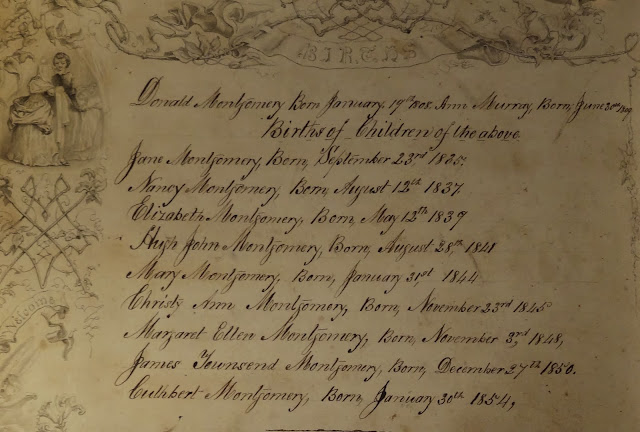 BIRTHS
Donald Montgomery Born January, 19th 1808. Ann Murray, Born, June 30th
Births of Children of the above
Jane Montgomery, Born, September 23rd 1835.
Nancy Montgomery, Born, August 12th 1837.
Elizabeth Montgomery, Born, May 12th 1839
Hugh John Montgomery, Born, August 28,th 1841
Mary Montgomery, Born, January 31,st 1844
Christy Ann Montgomery, Born, November 23rd 1845
Margaret Ellen Montgomery, Born, November 3,rd 1848,
James Townsend Montgomery, Born, December 27th 1850.
Cuthbert Montgomery, Born, January 30th 1854,
Welcome